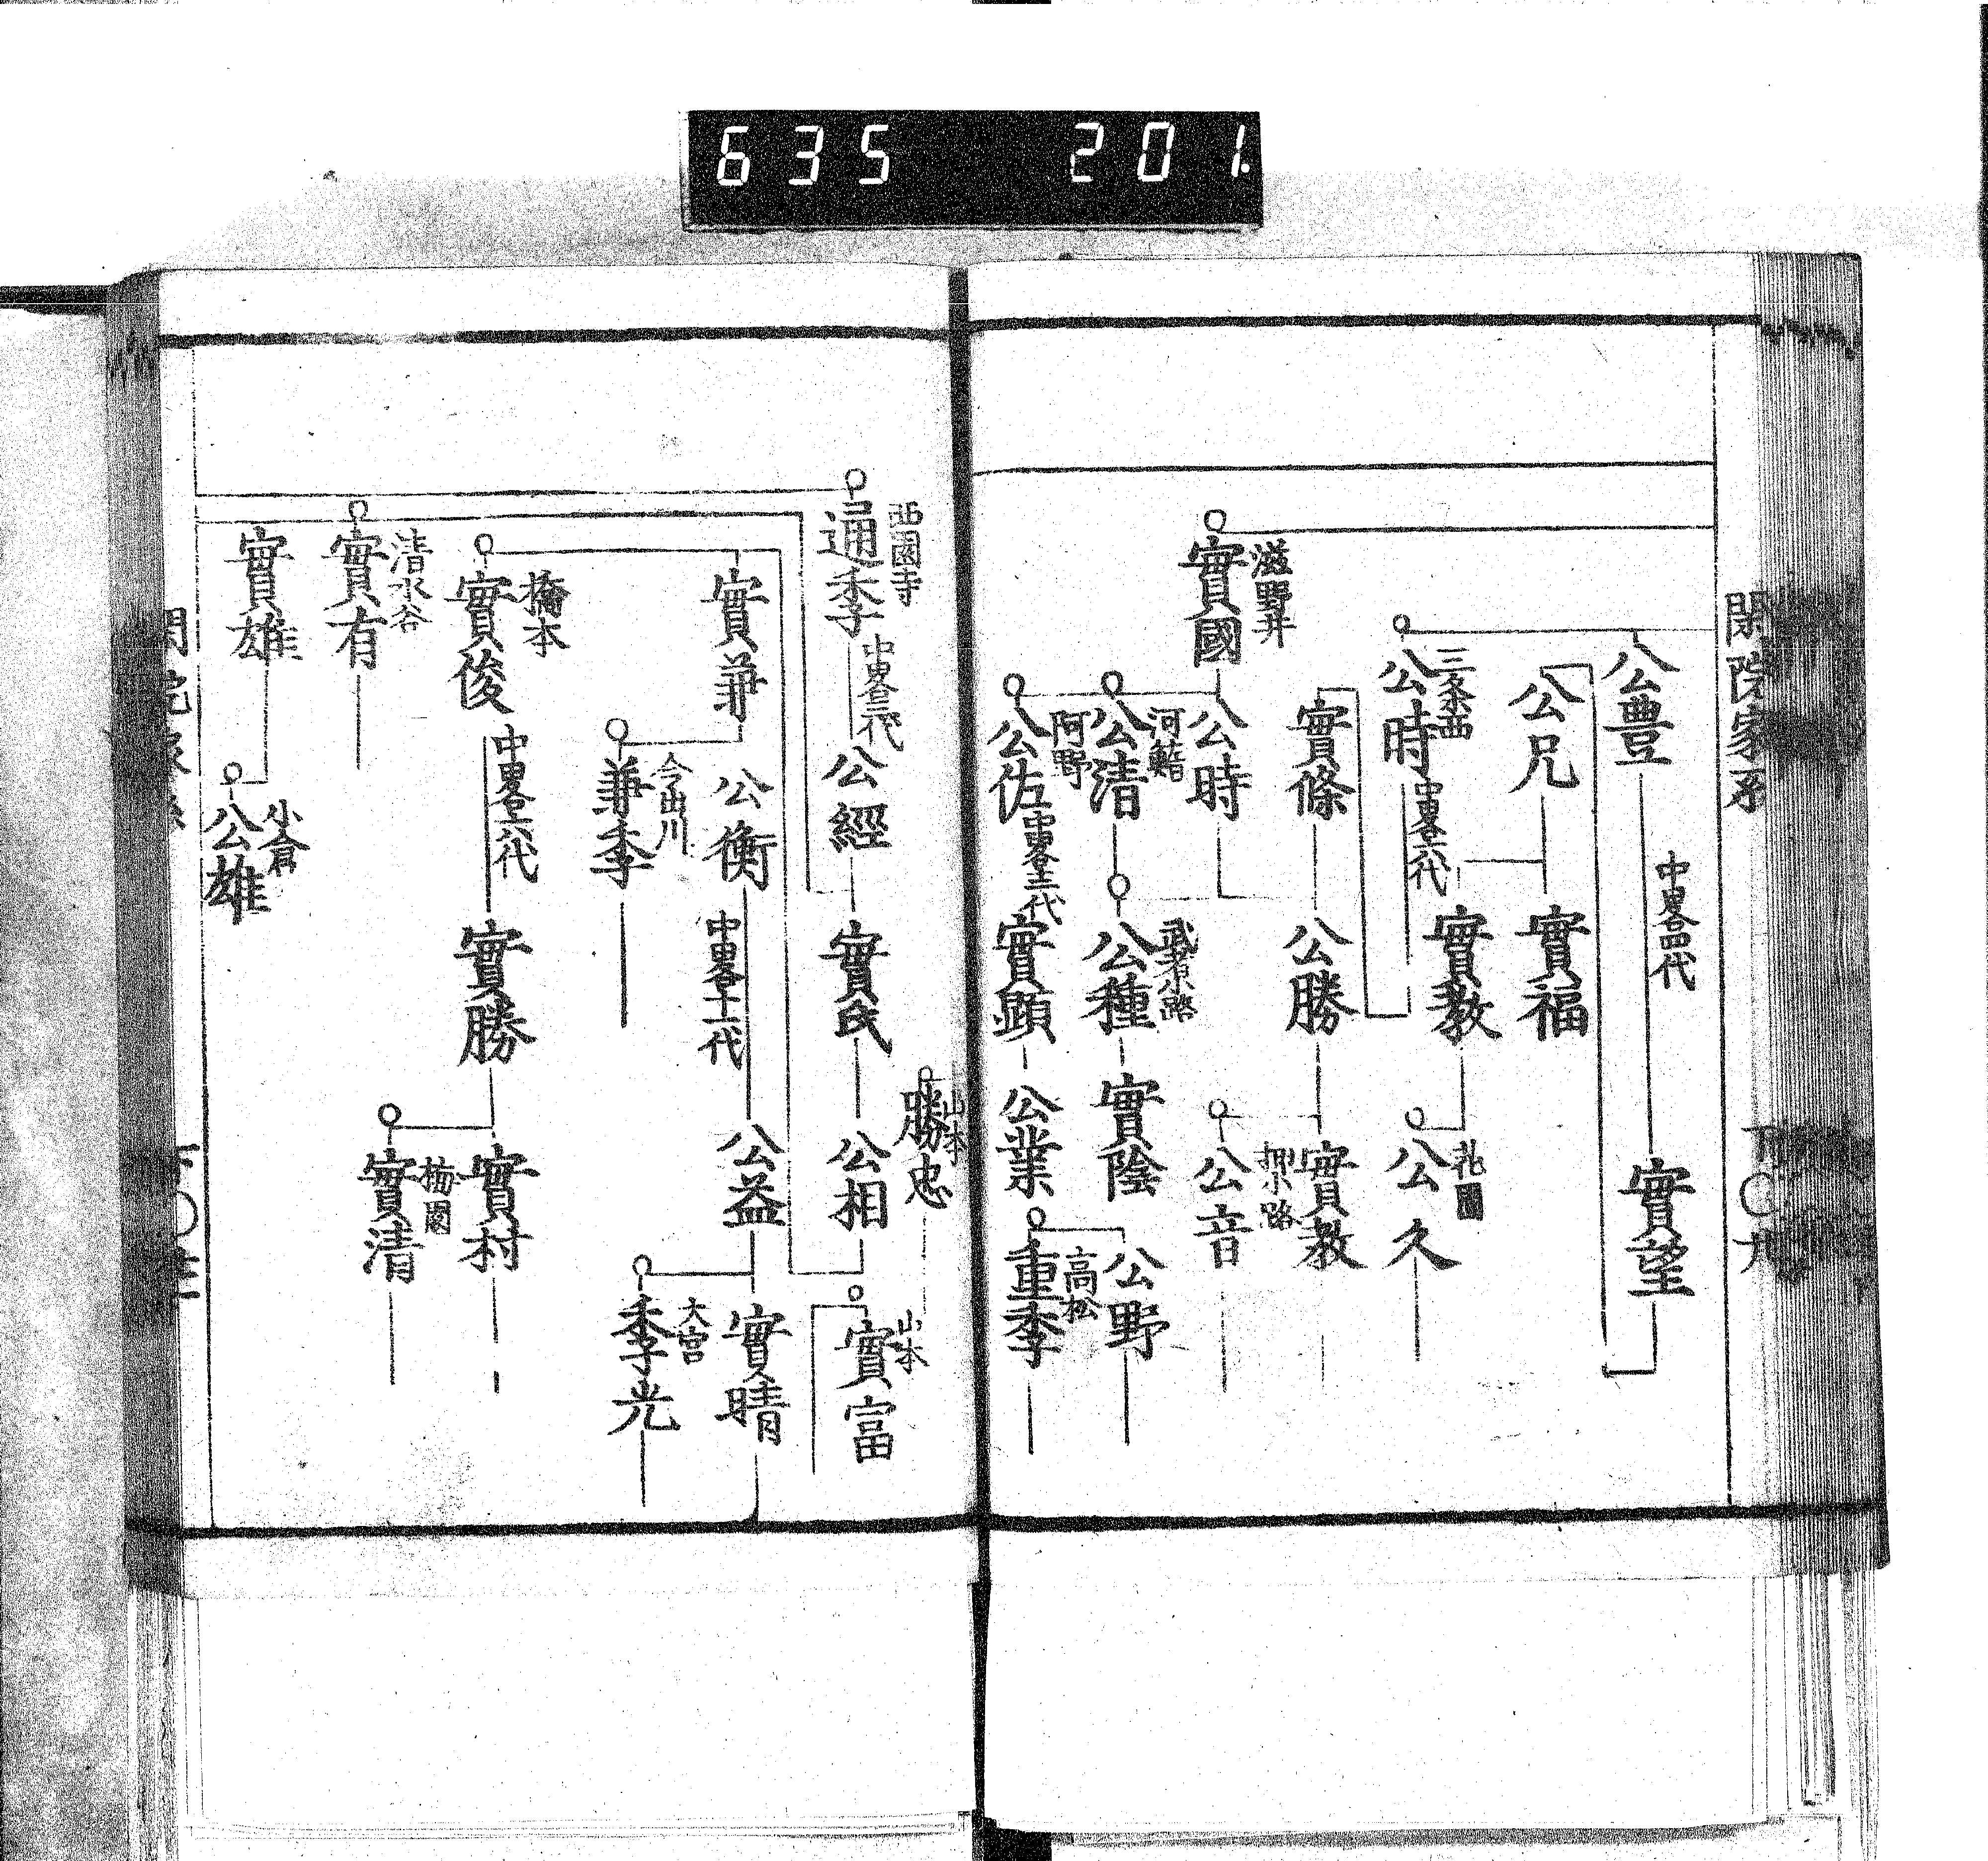 635 201.
閑院家系
公豊
中畧四代
實望
公兄
實福
三条西
公時
中畧六代
實教
花園
公久
實條
公勝
實教
押小路
公音
滋野井
實國
公時
河鰭
公清
武者小路
公種
實陰
公野
阿野
公佐
中畧十三代
實顕
公業
高松
重季
西園寺
通季
中畧三代
公經
實氏
公相
山本
勝忠
山本
實富
實兼
公衡
中畧十一代
公益
實晴
今出川
兼季
大宮
季光
橋本
實俊
中畧十六代
實勝
實村
梅園
實清
清水谷
實有
實雄
小倉
公雄